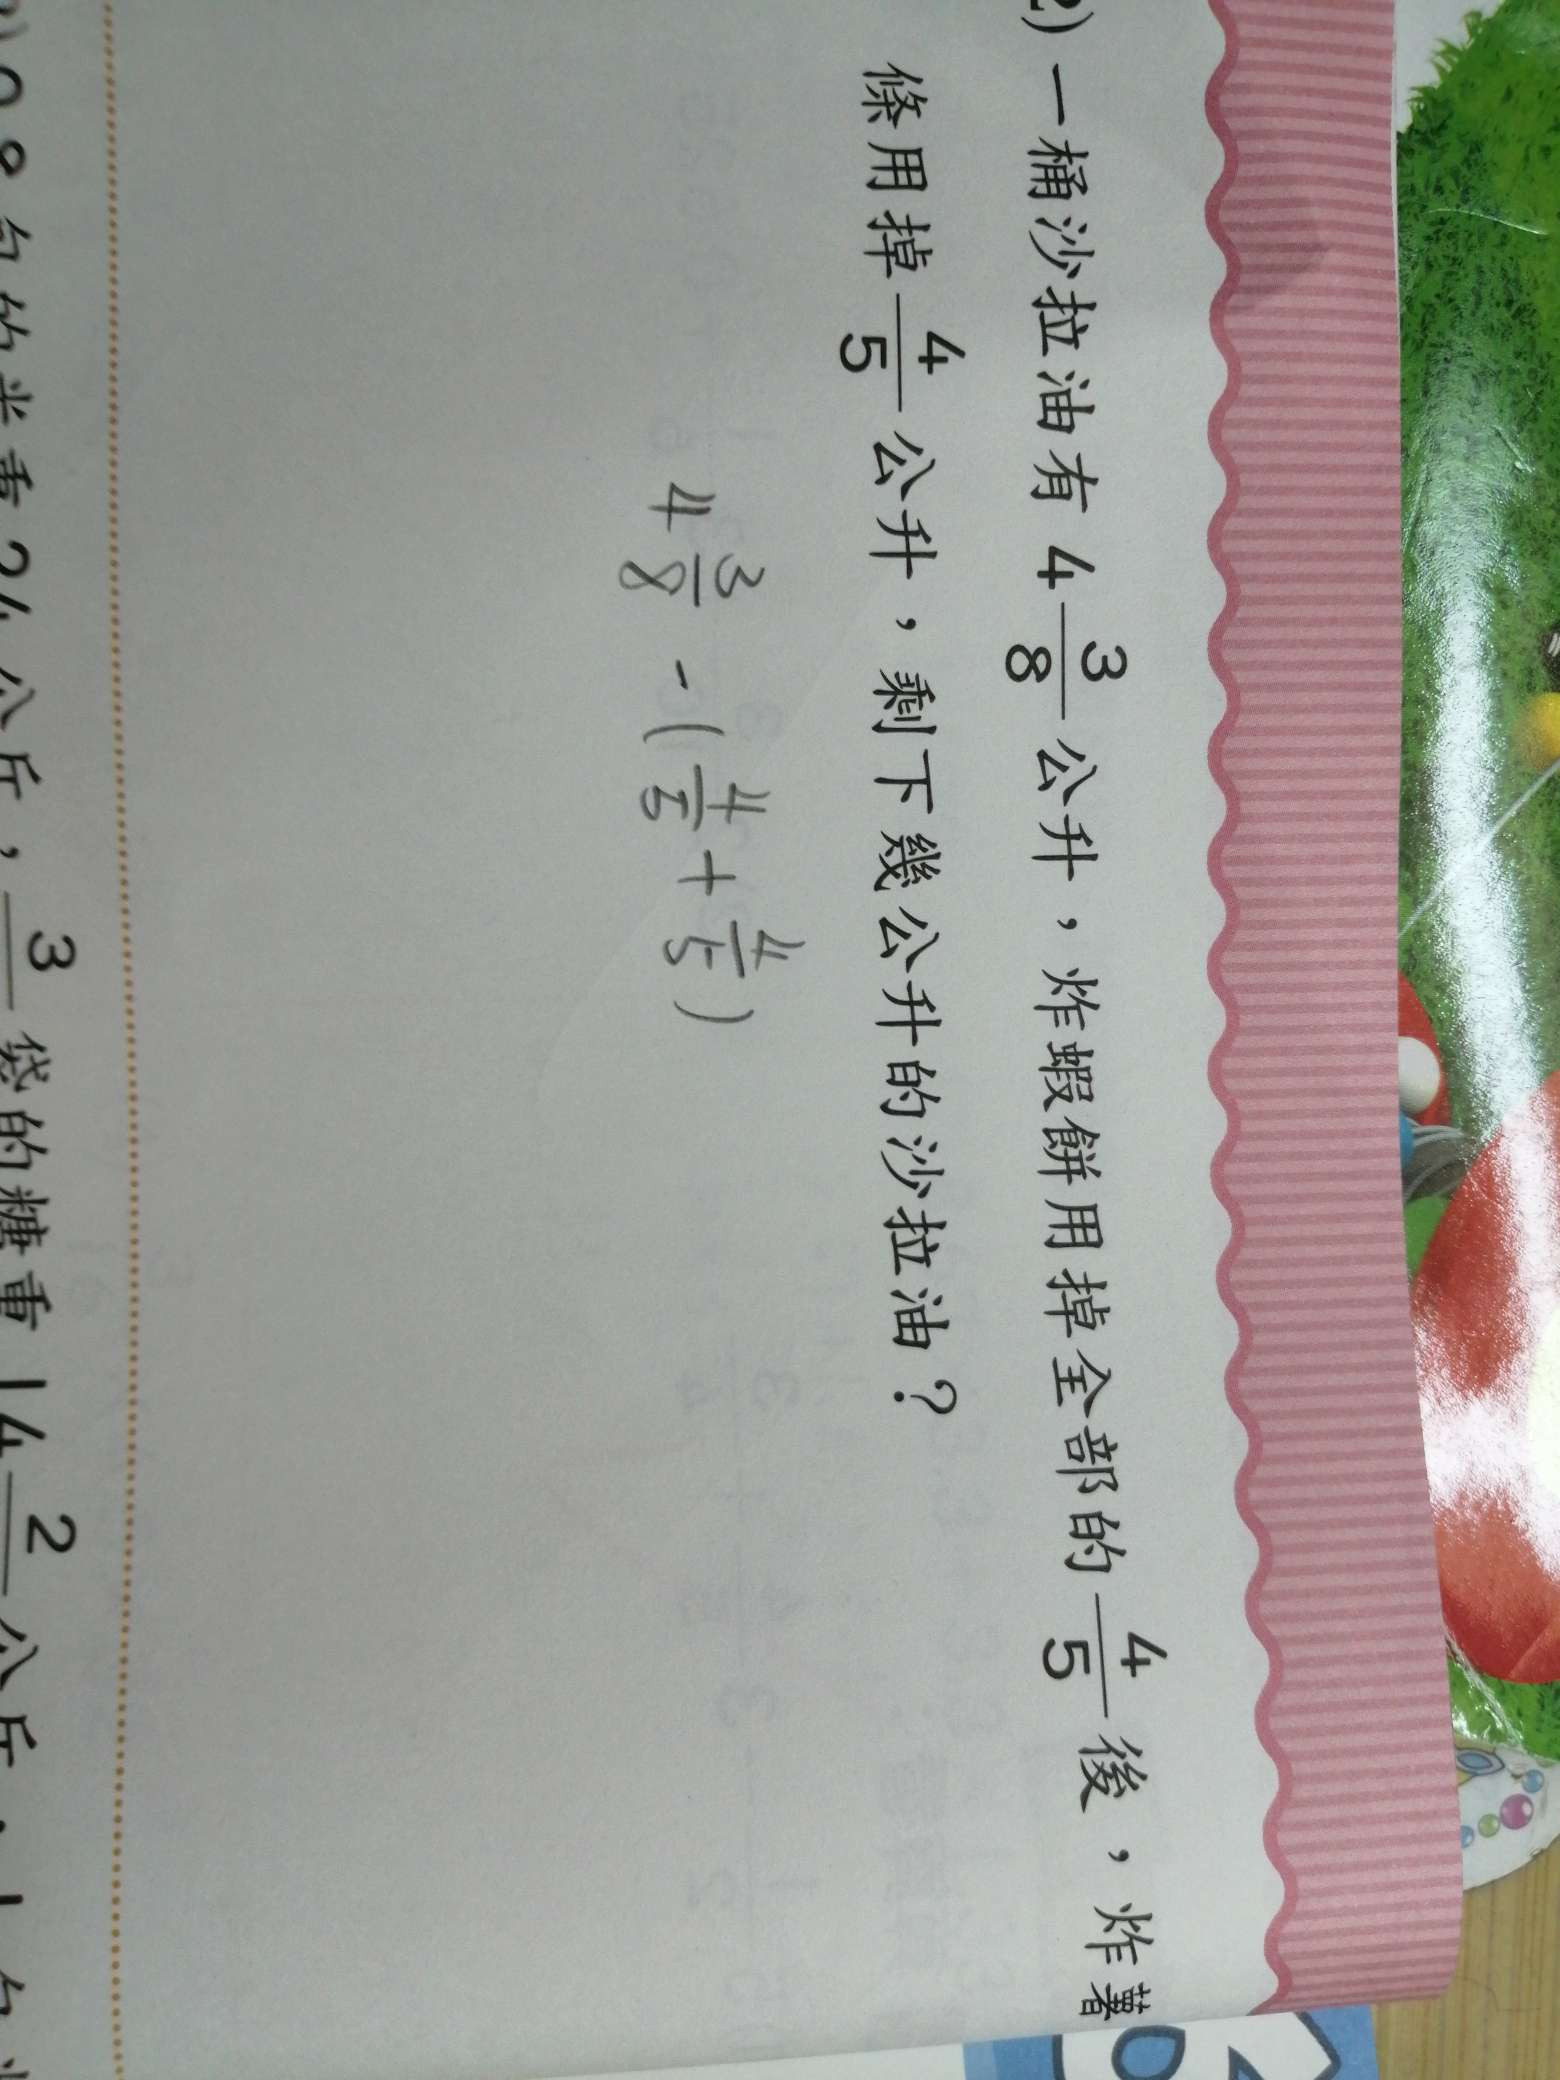 2) 一桶沙拉油有 4 3/8 公升，炸蝦餅用掉全部的 4/5 後，炸薯
條用掉 4/5 公升，剩下幾公升的沙拉油？
4 3/8 - ( 4/5 + 4/5 )
0.8 包的米重 24 公斤， 3/ 袋的糖重 14 2/ 公斤，1 包